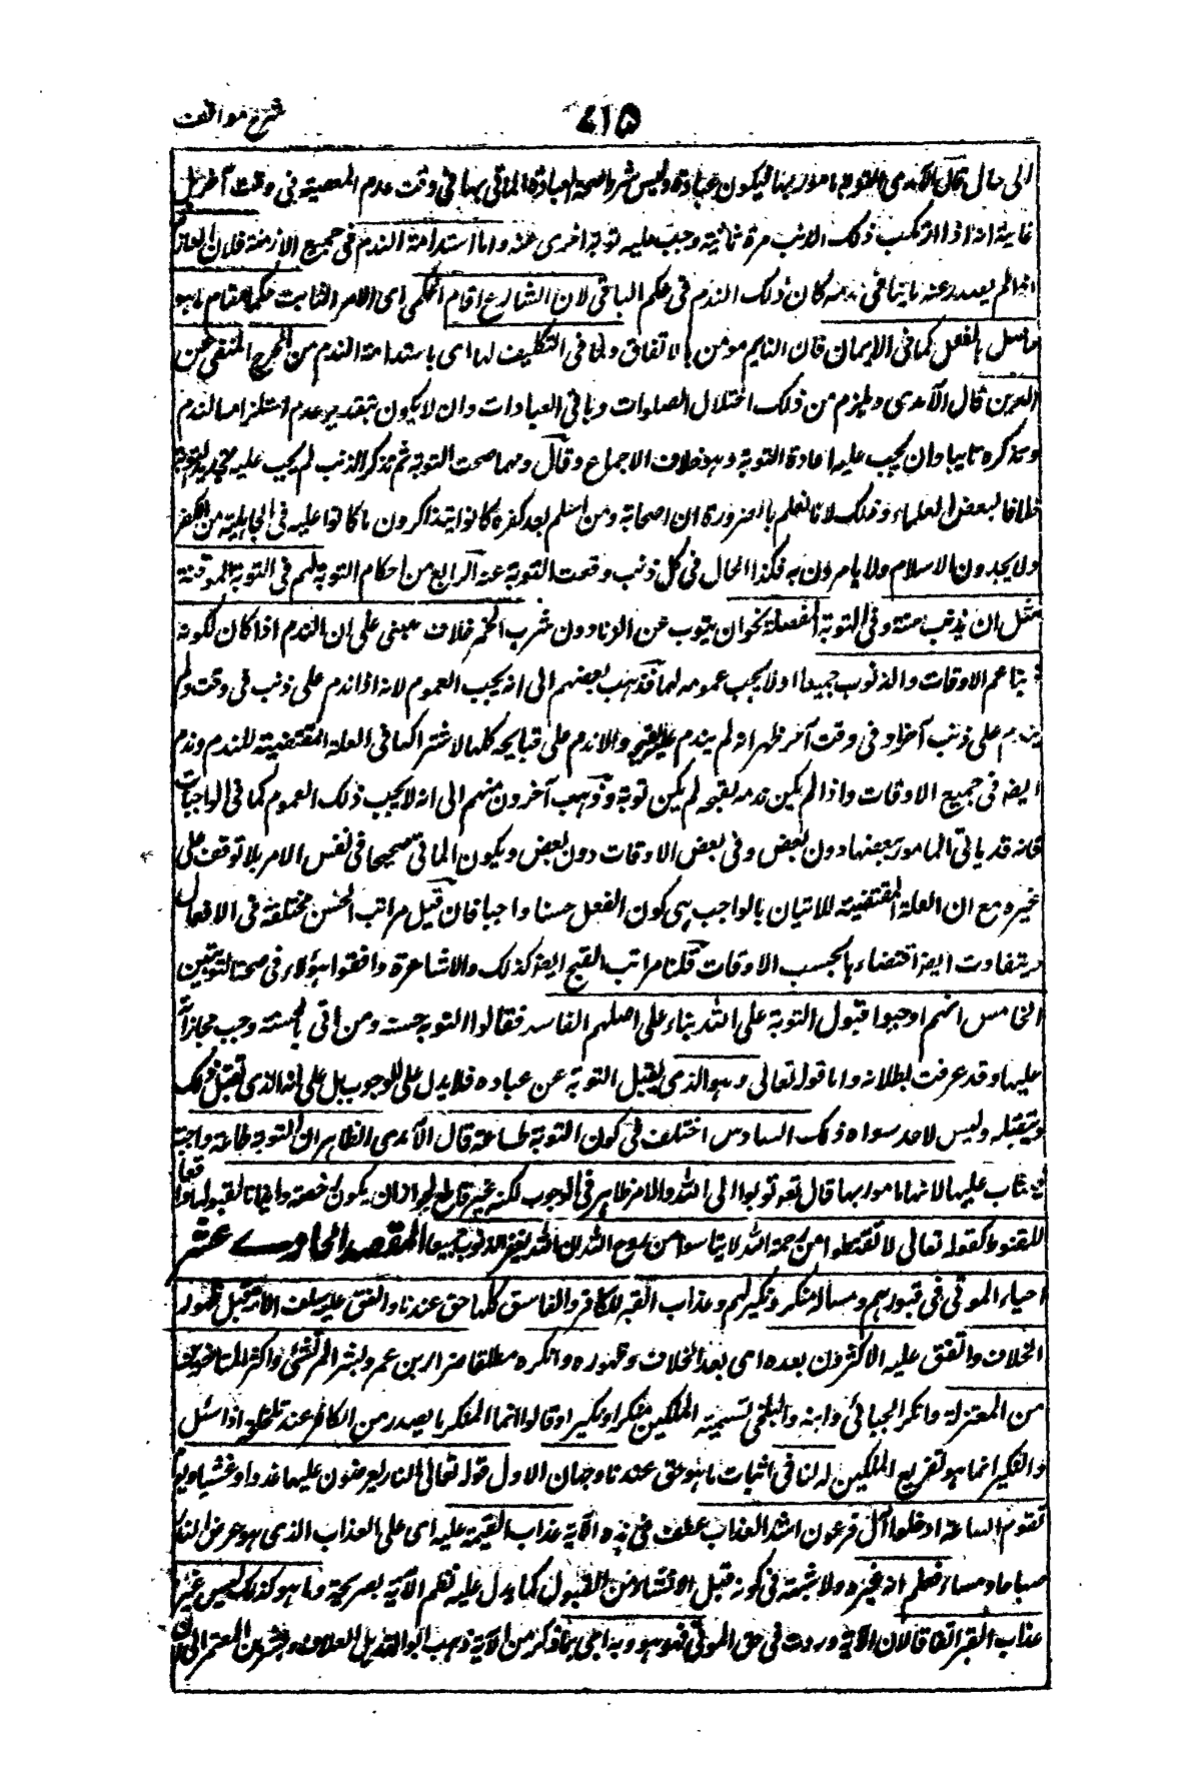 شرح مواقف
٧١٥
الى حال قال الآمدى التوبة مامور بها فيكون عبادة وليس شرط صحة العبادة الماتى بها فى وقت عدم المعصية فى وقت آخر بل
غايته انه اذا ارتكب ذلك الذنب مرة ثانية وجب عليه توبة اخرى عنه واما استدامة الندم فى جميع الازمنة فلان العازم
اذا لم يصدر عنه ما ينافى ندمه كان ذلك الندم فى حكم الباقى لان الشارع اقام الحكمى اى الامر الثابت حكما مقام ما هو
حاصل بالفعل كما فى الايمان فان النايم مومن بالاتفاق ولما فى التكليف لها اى باستدامة الندم من الحرج المنفى عن
الدين قال الآمدى ويلزم من ذلك اختلال الصلوات وباقى العبادات وان لا يكون بتقدير عدم استلزامه الندم
وتذكره تايبا وان يجب عليه اعادة التوبة وهو خلاف الاجماع وقال ومهما صحت التوبة ثم تذكر الذنب لم يجب عليه تجديد التوبة
خلافا لبعض العلماء وذلك لانا نعلم بالضرورة ان الصحابة ومن اسلم بعد كفره كانوا يتذاكرون ما كانوا عليه فى الجاهلية من الكفر
ولا يجددون الاسلام ولا يامرون به فكذا الحال فى كل ذنب وقعت التوبة عنه الرابع من احكام التوبة لهم فى التوبة الموقتة
مثل ان يذنب سنة وفى التوبة المفصلة نحو ان يتوب عن الزنا دون شرب الخمر خلاف مبنى على ان الندم اذا كان لكونه
ذنبا عم الاوقات والذنوب جميعا او لا يجب عمومه لهما فذهب بعضهم الى انه يجب العموم لانه اذا ندم على ذنب فى وقت ولم
يندم على ذنب آخر او فى وقت آخر ظهر انه لم يندم عليه لقبحه والا ندم على قبايحه كلها لاشتراكها فى العلة المقتضية للندم وندم
ايضه فى جميع الاوقات واذا لم يكن ندمه لقبحه لم يكن توبة وذهب آخرون منهم الى انه لا يجب ذلك العموم كما فى الواجبات
فانه قد ياتى المامور ببعضها دون بعض وفى بعض الاوقات دون بعض ويكون الماتى صحيحا فى نفس الامر بلا توقف على
غيره مع ان العلة المقتضية للاتيان بالواجب هى كون الفعل حسنا واجبا فان قيل مراتب الحسن مختلفة فى الافعال
ويتفاوت ايضه اقتضاءها بحسب الاوقات قلنا مراتب القبح ايضه كذلك والاشاعرة وافقوا هؤلاء فى صحة التوبتين
الخامس انهم اوجبوا قبول التوبة على الله بناء على اصلهم الفاسد فقالوا التوبة حسنة ومن اتى بالحسنة وجب مجازاته
عليها وقد عرفت بطلانه واما قوله تعالى وهو الذى يقبل التوبة عن عباده فلا يدل على الوجوب بل على انه الذى يتقبل ذلك
ويتقبله وليس لاحد سواه ذلك السادس اختلف فى كون التوبة طاعة قال الآمدى الظاهر ان التوبة طاعة واجبة
فيثاب عليها لانها مامور بها قال تعه توبوا الى الله والامر ظاهر فى الوجوب لكنه غير قاطع لجواز ان يكون رخصة وايذانا لقبولها ودفعا
للقنوط كقوله تعالى لا تقنطوا من رحمة الله لا يتاسوا من روح الله ان الله يغفر الذنوب جميعا المقصد الحادى عشر
احياء الموتى فى قبورهم ومسألة منكر ونكير لهم وعذاب القبر للكافر والفاسق كلها حق عندنا واتفق عليه سلف الامة قبل ظهور
الخلاف واتفق عليه الاكثرون بعده اى بعد الخلاف وظهوره وانكره مطلقا ضرار بن عمر وبشر المريسى واكثر المتاخرين
من المعتزلة وانكر الجبائى وابنه والبلخى تسمية الملكين منكرا ونكيرا وقالوا انما المنكر ما يصدر من الكافر عند تلجلجه اذا سئل
والنكير انما هو تقريع الملكين له لنا فى اثبات ما هو حق عندنا وجهان الاول قوله تعالى النار يعرضون عليها غدوا وعشيا ويوم
تقوم الساعة ادخلوا آل فرعون اشد العذاب عطف فى هذه الآية عذاب القيمة عليه اى على العذاب الذى هو عرض النار
صباحا ومساء فعلم انه غيره ولا شبهة فى كونه قبل الانتشار من القبور كما يدل عليه نظم الآية بصريحه وما هو كذلك ليس غير
عذاب القبر اتفاقا لان الآية وردت فى حق الموتى فهو هو وبه اى بما ذكر من الآية ذهب ابو الهذيل العلاف وبشر بن المعتمر الى ان